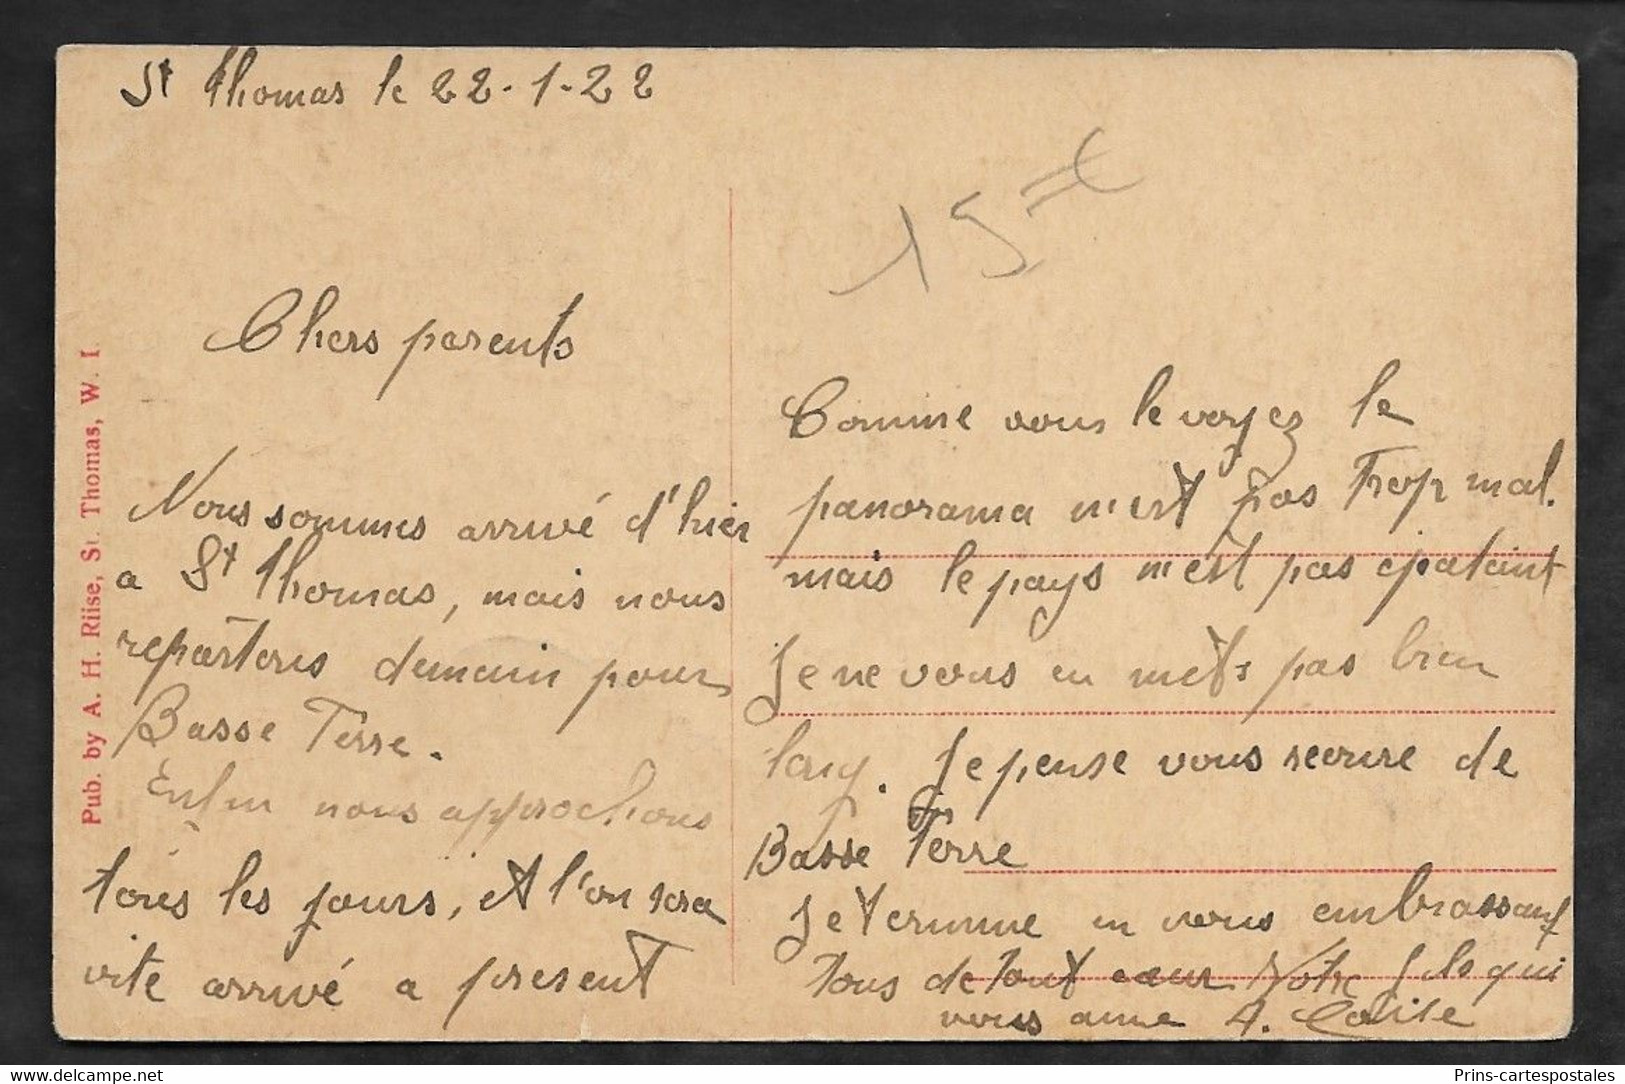 St Thomas le 22-1-22
15 €
Chers parents
Nous sommes arrivé d'hier
a St Thomas, mais nous
repartons demain pour
Basse Terre.
Enfin nous approchons
tous les jours, et l'on sera
vite arrivé a present
Comme vous le voyez le
panorama n'est pas trop mal.
mais le pays n'est pas epatant
Je ne vous en mets pas bien
long. Je pense vous recrire de
Basse Terre
Je termine en vous embrassant
tous de tout cœur Votre fils qui
vous aime A.
Pub. by A. H. Riise, St. Thomas, W. I.
delcampe.net
Prins-cartespostales